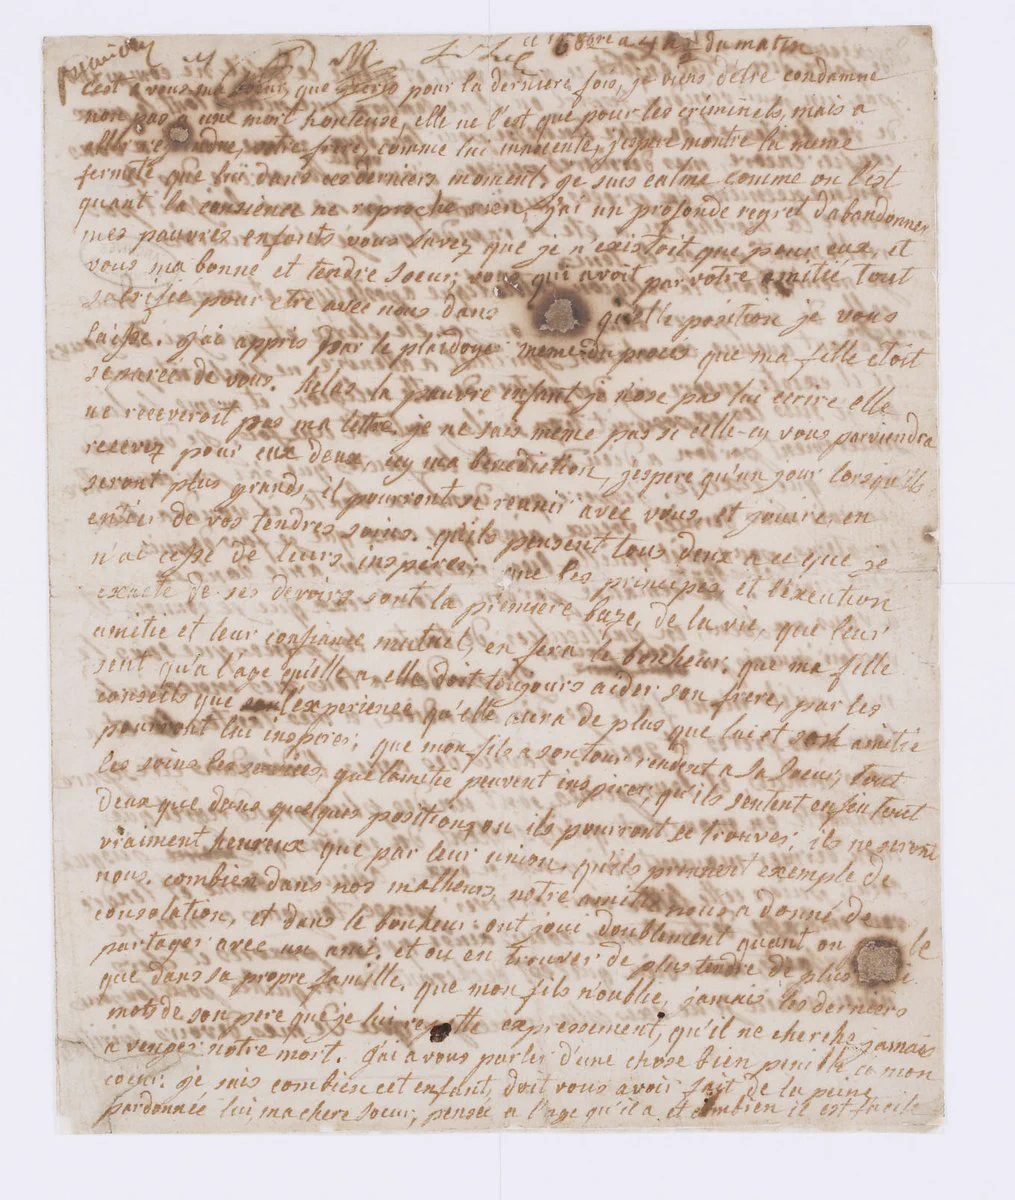 ce 16 8bre a 4 h ½ du matin
c'est a vous ma soeur, que j'ecris pour la derniere fois, je viens d'etre condamne
non pas a une mort honteuse, elle ne l'est que pour les criminels, mais a
aller rejoindre votre frere, comme lui innocente, j'espere montre la meme
fermeté que lui dans ces derniers moment. je suis calme comme on l'est
quant la consience ne reproche rien, j'ai un profonde regret d'abandonner
mes pauvres enfants vous savez que je n'existoit que pour eux, et
vous ma bonne et tendre soeur, vous qui avoit par votre amitié tout
sacrifié pour etre avec nous dans quelle position je vous
laisse. j'ai appris par le plaidoye meme du procés que ma fille etoit
separée de vous. helas la pauvre enfant je n'ose pas lui ecrire elle
ne receveroit pas ma lettre je ne sais meme pas si celle-cy vous parviendra
recevez pour eux deux icy ma benediction, j'espere qu'un jour lorsqu'ils
seront plus grands, il pourront se reunir avec vous, et jouire en
entier de vos tendres soins. qu'ils pensent tous deux a ce que je
n'ai cessé de leurs inspirer, que les principes, et l'exécution
exacte de ses devoirs sont la premiere baze, de la vie, que leur
amitié et leur confiance mutuel, en fera le bonheur. que ma fille
sent qu'a l'age qu'elle a elle doit toujours aider son frere, par les
conseils que l'experience qu'elle aura de plus que lui et son amitié
pourront lui inspirer; que mon fils a son tour rendent a sa soeur, tout
les soins les services, que l'amitié peuvent inspirer, qu'ils sentent enfin tout
deux que dans quelques positions ou ils pourront se trouver, ils ne seront
vraiment heureux que par leur union, qu'ils prennent exemple de
nous. combien dans nos malheurs, notre amitié nous a donné de
consolation, et dans le bonheur ont joui doublement quant on le
partager avec un ami. et ou en trouver de plus tendre de plus
que dans sa propre famille, que mon fils n'oublie, jamais les derniers
mots de son pere que je lui repette expressement, qu'il ne cherche jamais
a venger notre mort. j'ai a vous parler d'une chose bien penible a mon
coeur. je sais combien cet enfant, doit vous avoir fait de la peine
pardonnée lui, ma chere soeur, pensée a l'age qu'il a et combien il est facile